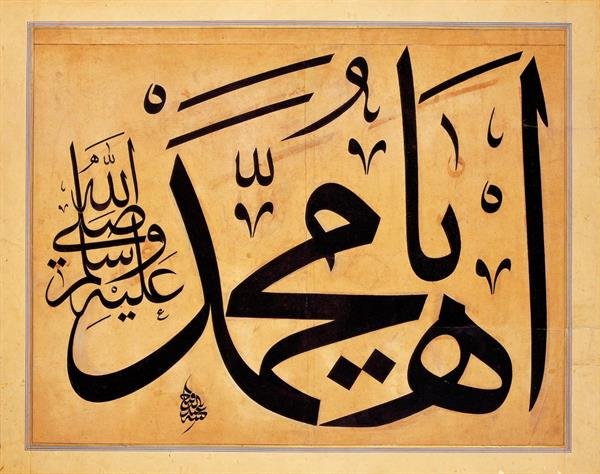 اه يا مُحَمَّدْ
صلى الله عليه وسلم